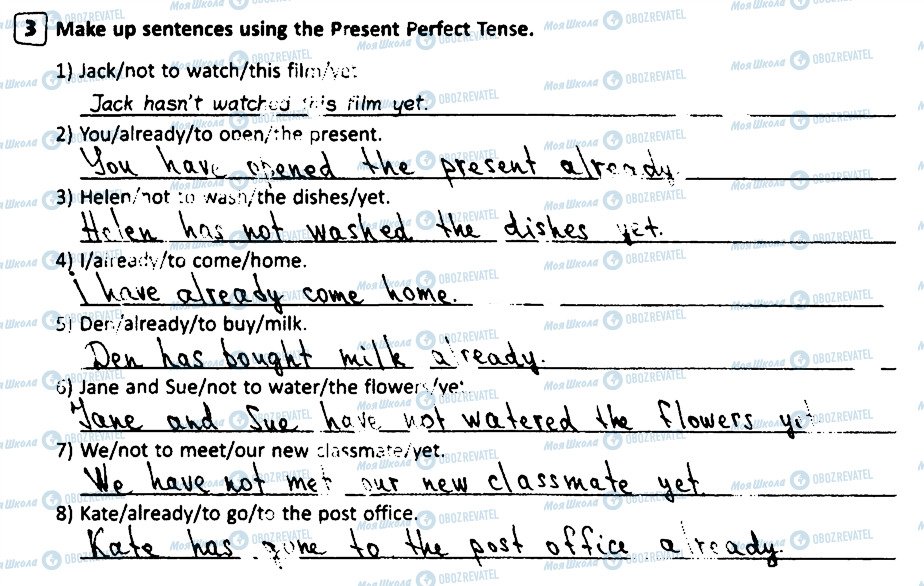 3 Make up sentences using the Present Perfect Tense.
1) Jack/not to watch/this film/yet.
Jack hasn't watched this film yet.
2) You/already/to open/the present.
You have opened the present already.
3) Helen/not to wash/the dishes/yet.
Helen has not washed the dishes yet.
4) I/already/to come/home.
i have already come home.
5) Den/already/to buy/milk.
Den has bought milk already.
6) Jane and Sue/not to water/the flowers/yet.
Jane and Sue have not watered the flowers yet.
7) We/not to meet/our new classmate/yet.
We have not met our new classmate yet.
8) Kate/already/to go/to the post office.
Kate has gone to the post office already.
Моя Школа OBOZREVATEL